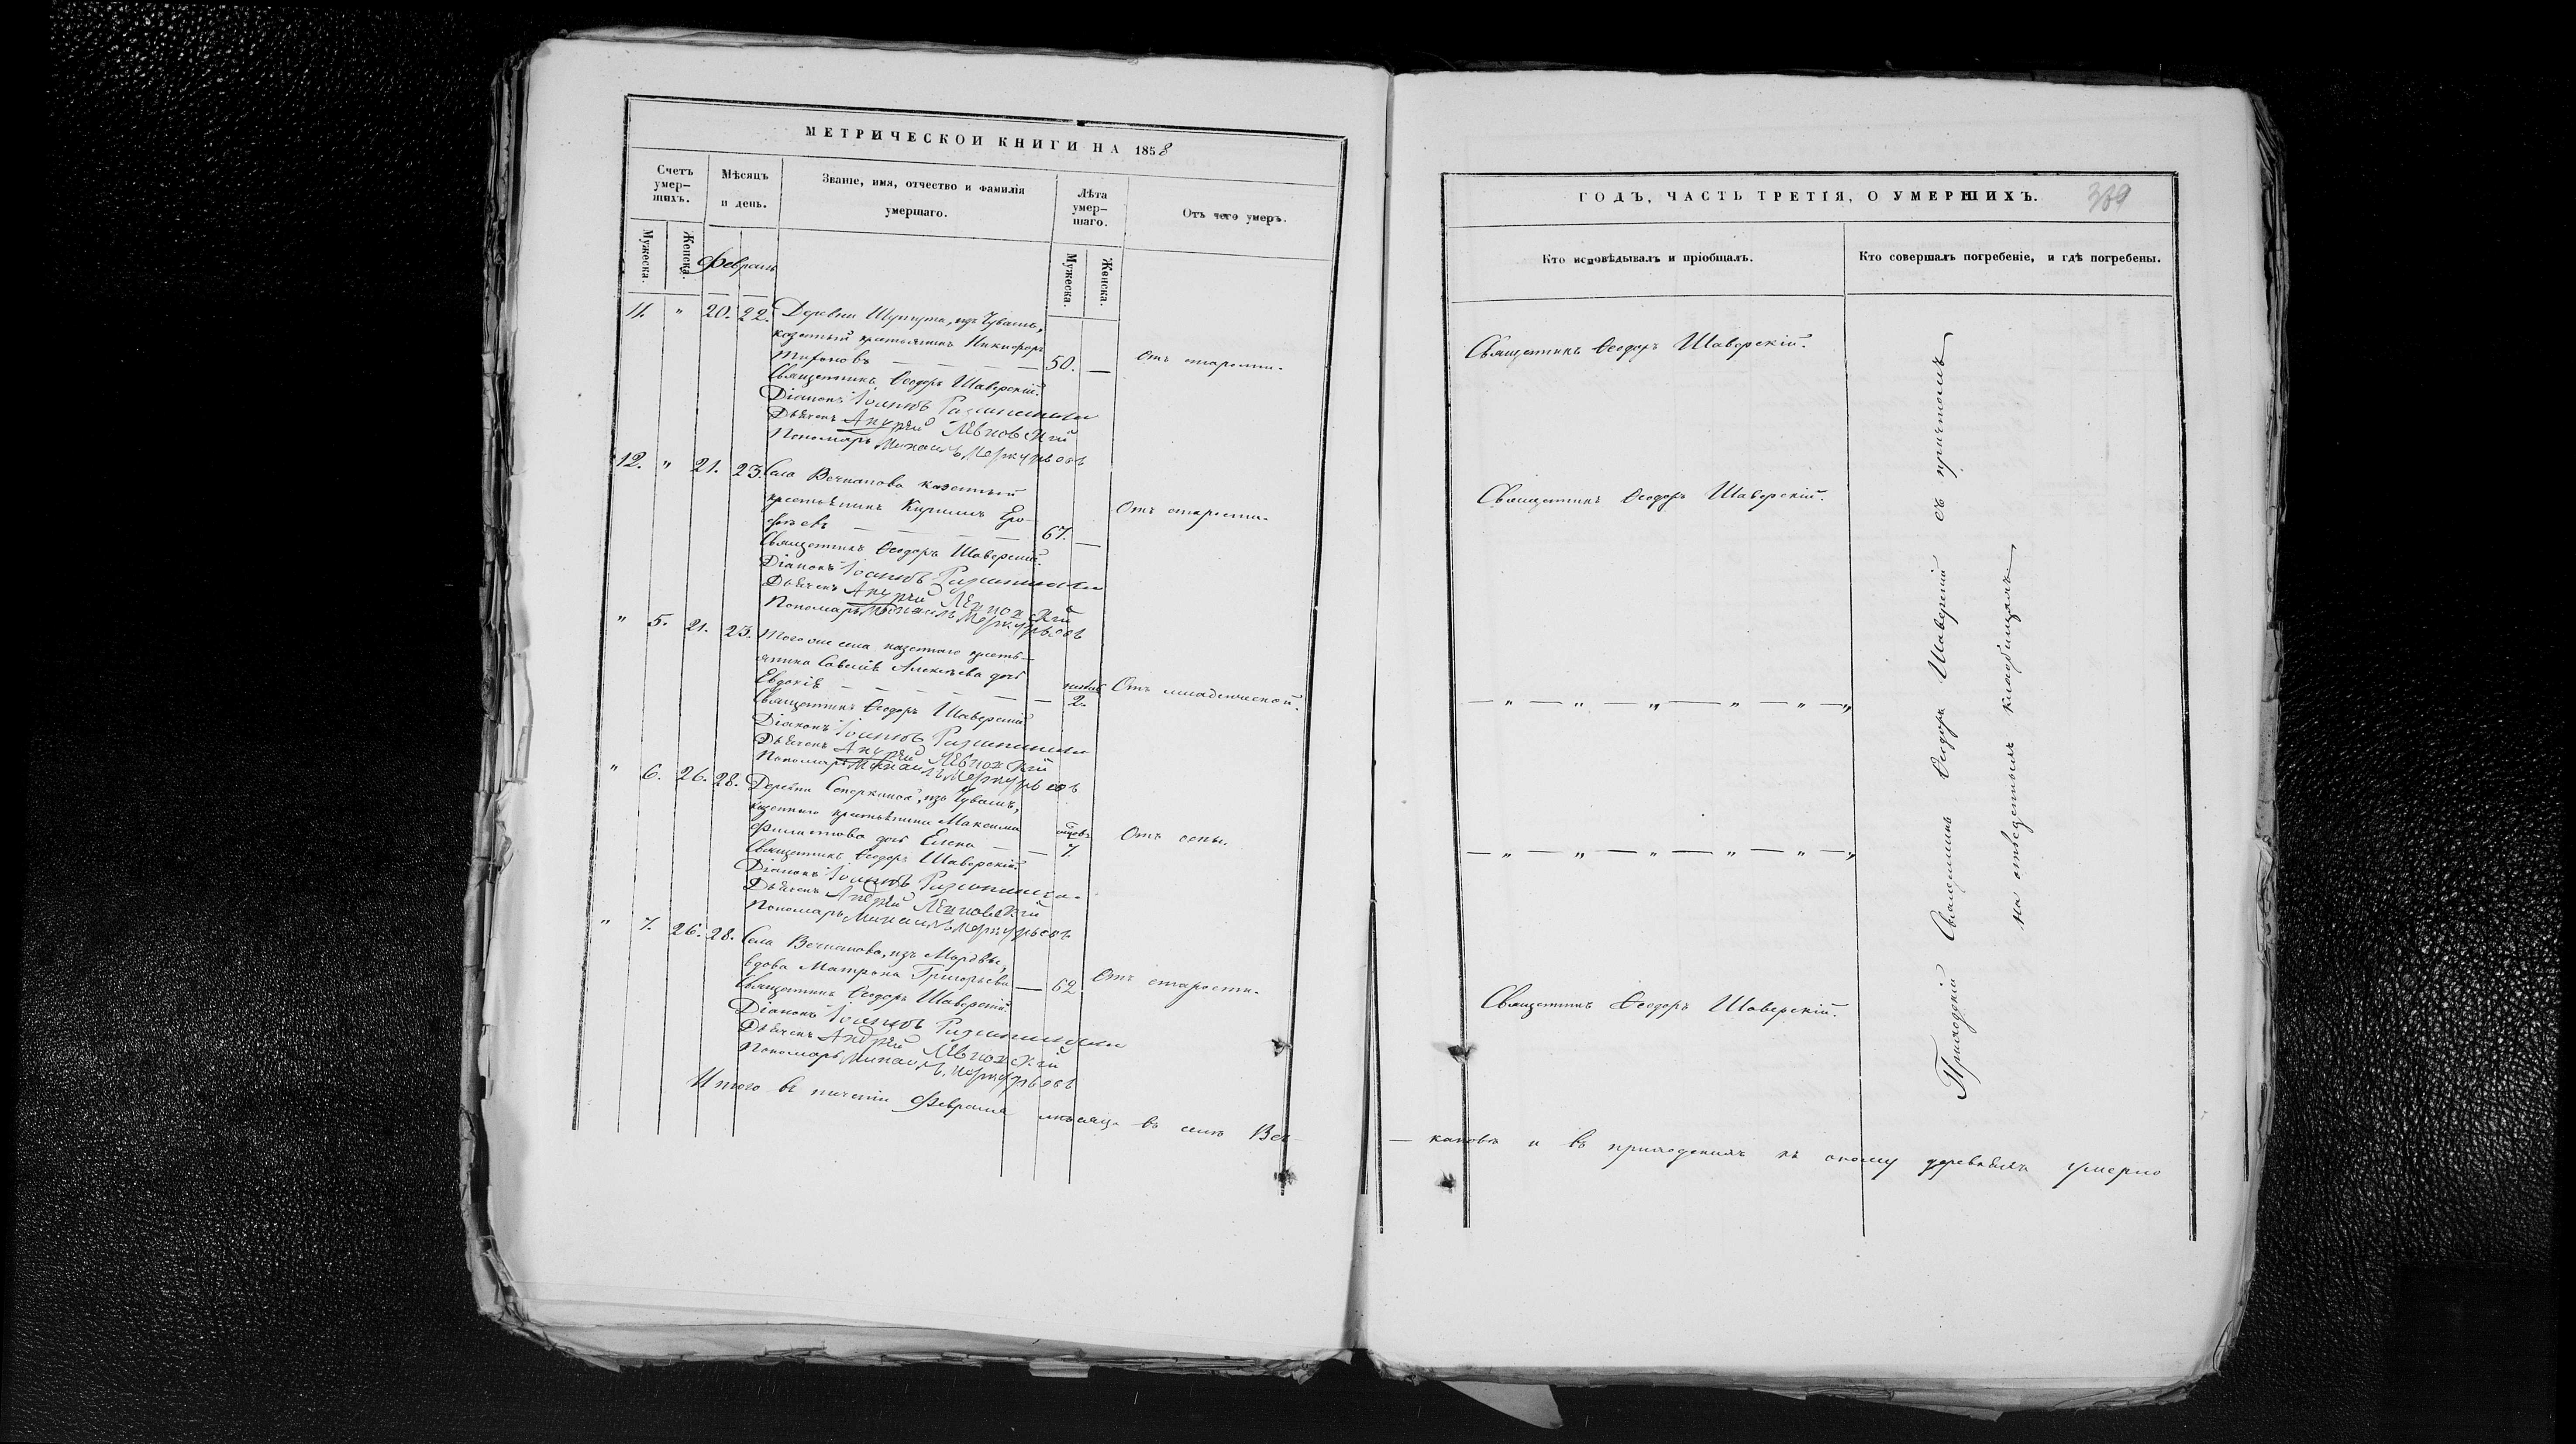 МЕТРИЧЕСКОЙ КНИГИ НА 1858
Счетъ умер-
шихъ.
Мѣсяцъ
и день.
Званіе, имя, отчество и фамилія
умершаго.
Лѣта
умер-
шаго.
Отъ чего умеръ.
Мужеска.
Женска.
Февраль
Мужеска.
Женска.
11. " 20. 22. Деревни изъ Чувашъ,
казенный крестьянинъ Никифоръ
Тихоновъ — — — 50. — Отъ старости.
Священникъ Ѳеодоръ Шаверскій.
Діаконъ Іоаннъ
Дьячекъ Андрей
Пономарь Михаилъ Меркурьевъ
12. " 21. 23. Села Вечканова казенный
крестьянинъ Кирилъ Еро-
фѣевъ — — — — 67. — Отъ старости.
Священникъ Ѳеодоръ Шаверскій.
Діаконъ Іоаннъ
Дьячекъ Андрей
Пономарь Михаилъ Меркурьевъ
" 5. 21. 23. Того же села казеннаго кресть-
янина Савелія Алексѣева дочь
Евдокія — — — — — 2. Отъ младенческой.
Священникъ Ѳеодоръ Шаверскій
Діаконъ Іоаннъ
Дьячекъ Андрей
Пономарь Михаилъ Меркурьевъ
" 6. 26. 28. Деревни изъ Чувашъ,
казеннаго крестьянина Максима
Филипова дочь Елена — — 7. Отъ оспы.
Священникъ Ѳеодоръ Шаверскій.
Діаконъ Іоаннъ
Дьячекъ Андрей
Пономарь Михаилъ Меркурьевъ
" 7. 26. 28. Села Вечканова, изъ Мордвы,
вдова Матрона Григорьева — 62. Отъ старости.
Священникъ Ѳеодоръ Шаверскій.
Діаконъ Іоаннъ
Дьячекъ Андрей
Пономарь Михаилъ Меркурьевъ
Итого въ теченіи Февраля мѣсяца въ селѣ Веч-
ГОДЪ, ЧАСТЬ ТРЕТІЯ, О УМЕРШИХЪ.
Кто исповѣдывалъ и пріобщалъ.
Кто совершалъ погребеніе, и гдѣ погребены.
Священникъ Ѳеодоръ Шаверскій.
Священникъ Ѳеодоръ Шаверскій.
— " — " — " — " — " — "
— " — " — " — " — " — "
Священникъ Ѳеодоръ Шаверскій.
Приходскій Священникъ Ѳеодоръ Шаверскій съ причтомъ
на отведенныхъ кладбищахъ
— кановѣ и въ приходскихъ къ оному деревняхъ умерло